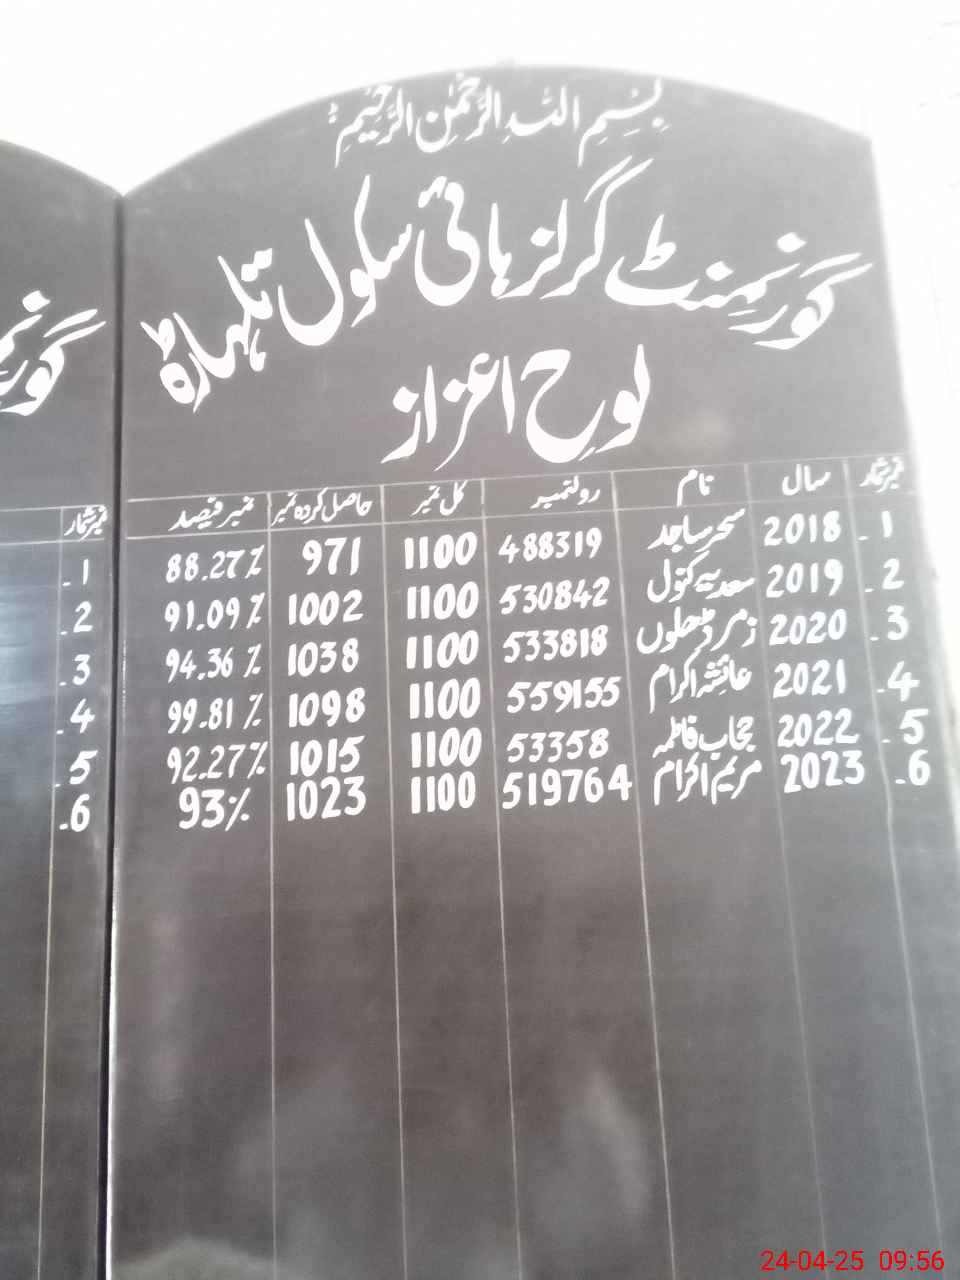 بِسْمِ اللہِ الرَّحْمٰنِ الرَّحِیْمِ
گورنمنٹ گرلز ہائی سکول تلہاڑہ
لوح اعزاز
نمبرشمار سال نام رولنمبر کل نمبر حاصل کردہ نمبر نمبر فیصد
1. 2018 سحر ساجد 488319 1100 971 88.27%
2. 2019 سعدیہ کنول 530842 1100 1002 91.09%
3. 2020 زمرد ڈھلوں 533818 1100 1038 94.36%
4. 2021 عائشہ اکرام 559155 1100 1098 99.81%
5. 2022 حجاب فاطمہ 53358 1100 1015 92.27%
6. 2023 مریم اکرام 519764 1100 1023 93%
نمبرشمار
1.
2.
3.
4.
5.
6.
24-04-25 09:56